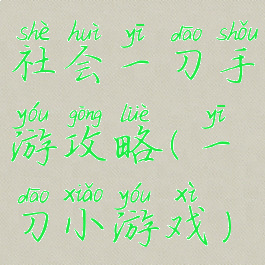 shè huì yī dāo shǒu
社会一刀手
yóu gōng lüè yī
游攻略(一
dāo xiǎo yóu xì
刀小游戏)